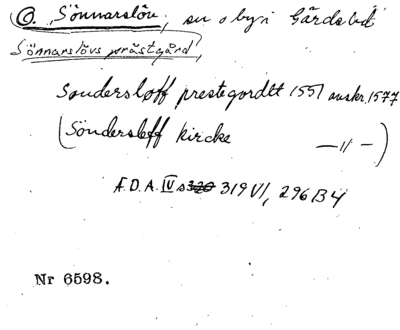 O. Sönnarslöv, sn o by i Gärds hd
Sönnarslövs prästgård,
Sondersloff prestegordtt 1551 avskr. 1577
(Söndersleff kircke —"—)
F. D. A. IV s 320 319 VI, 296 B 4
Nr 6598.